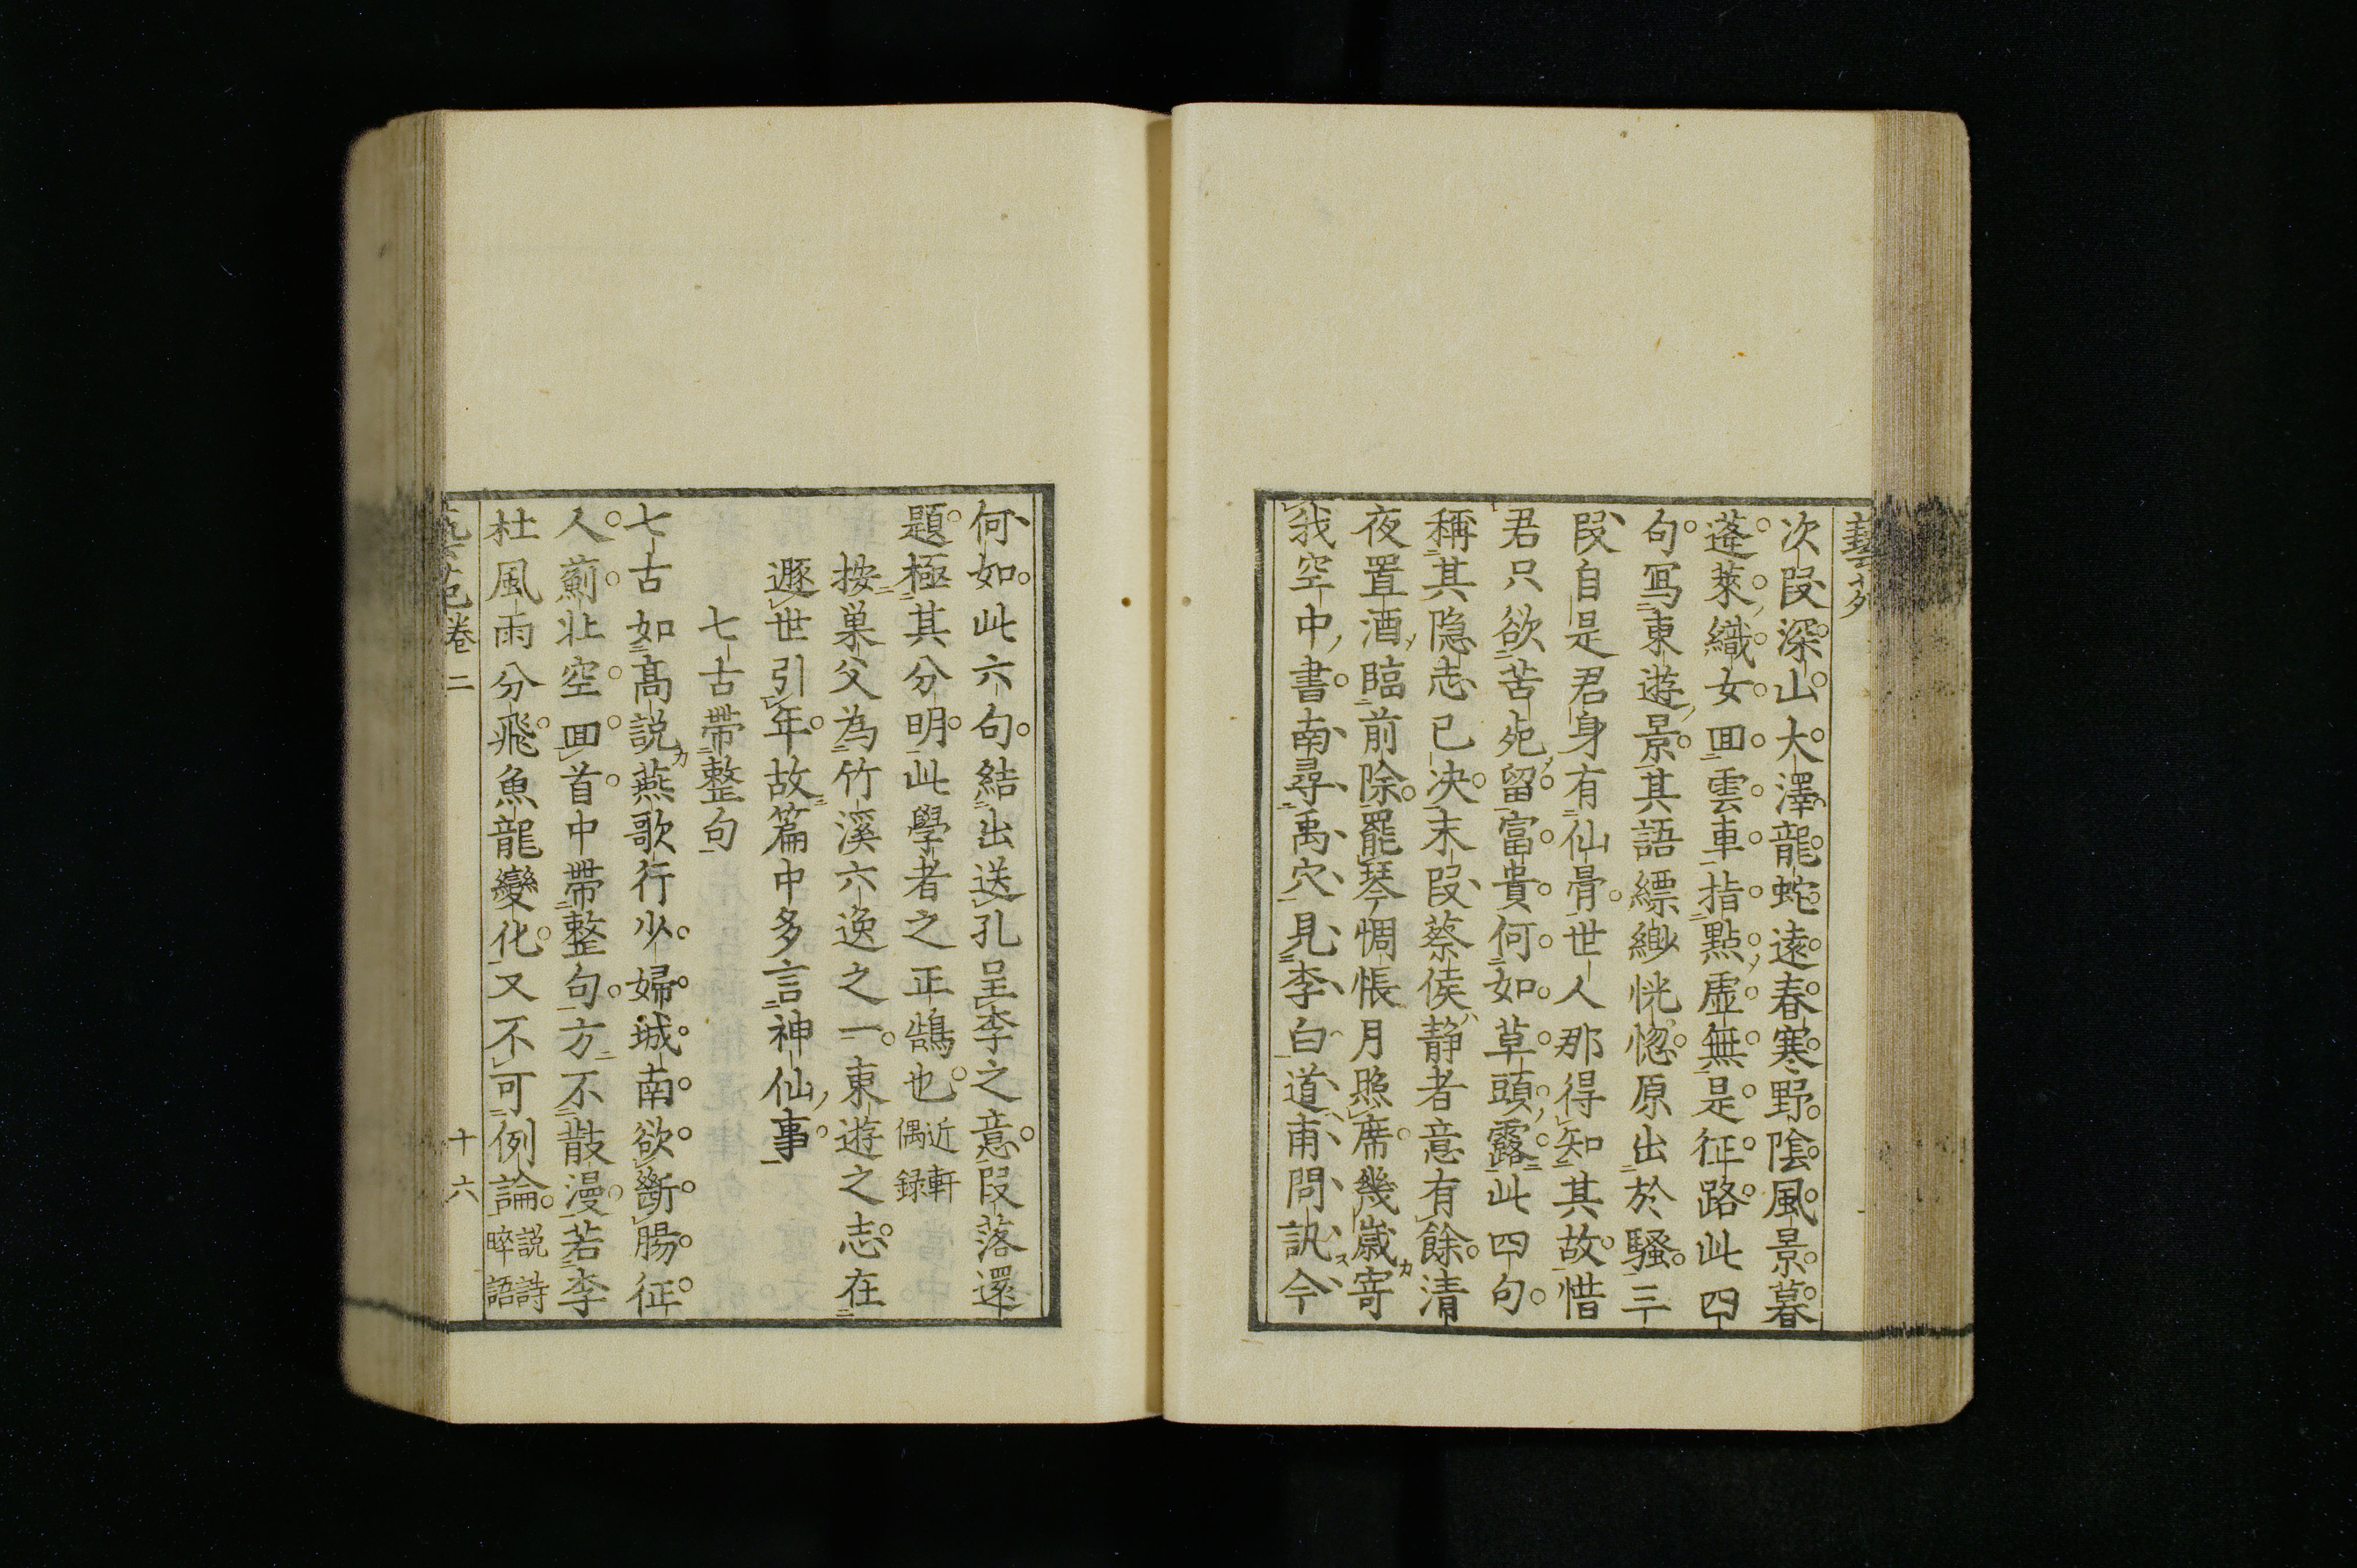 藝苑
次段深山大澤龍蛇遠春寒野陰風景暮
蓬萊織女回雲車指點虛無是征路此四
句写東遊景其語縹緲恍惚原出於騷三
段自是君身有仙骨世人那得知其故惜
君只欲苦死留富貴何如草頭露此四句
稱其隐志已决末段蔡侯静者意有餘清
夜置酒臨前除罷琴惆悵月照席幾歳寄
我空中書南尋禹穴見李白道甫問訊今
何如此六句結出送孔呈李之意段落還
題極其分明此學者之正鵠也近軒偶録
按巢父為竹溪六逸之一東遊之志在
遯世引年故篇中多言神仙事
七古帶整句
七古如髙説燕歌行少婦城南欲斷腸征
人薊北空回首中帶整句方不散漫若李
杜風雨分飛魚龍變化又不可例論説詩晬語
藝苑卷二 十六